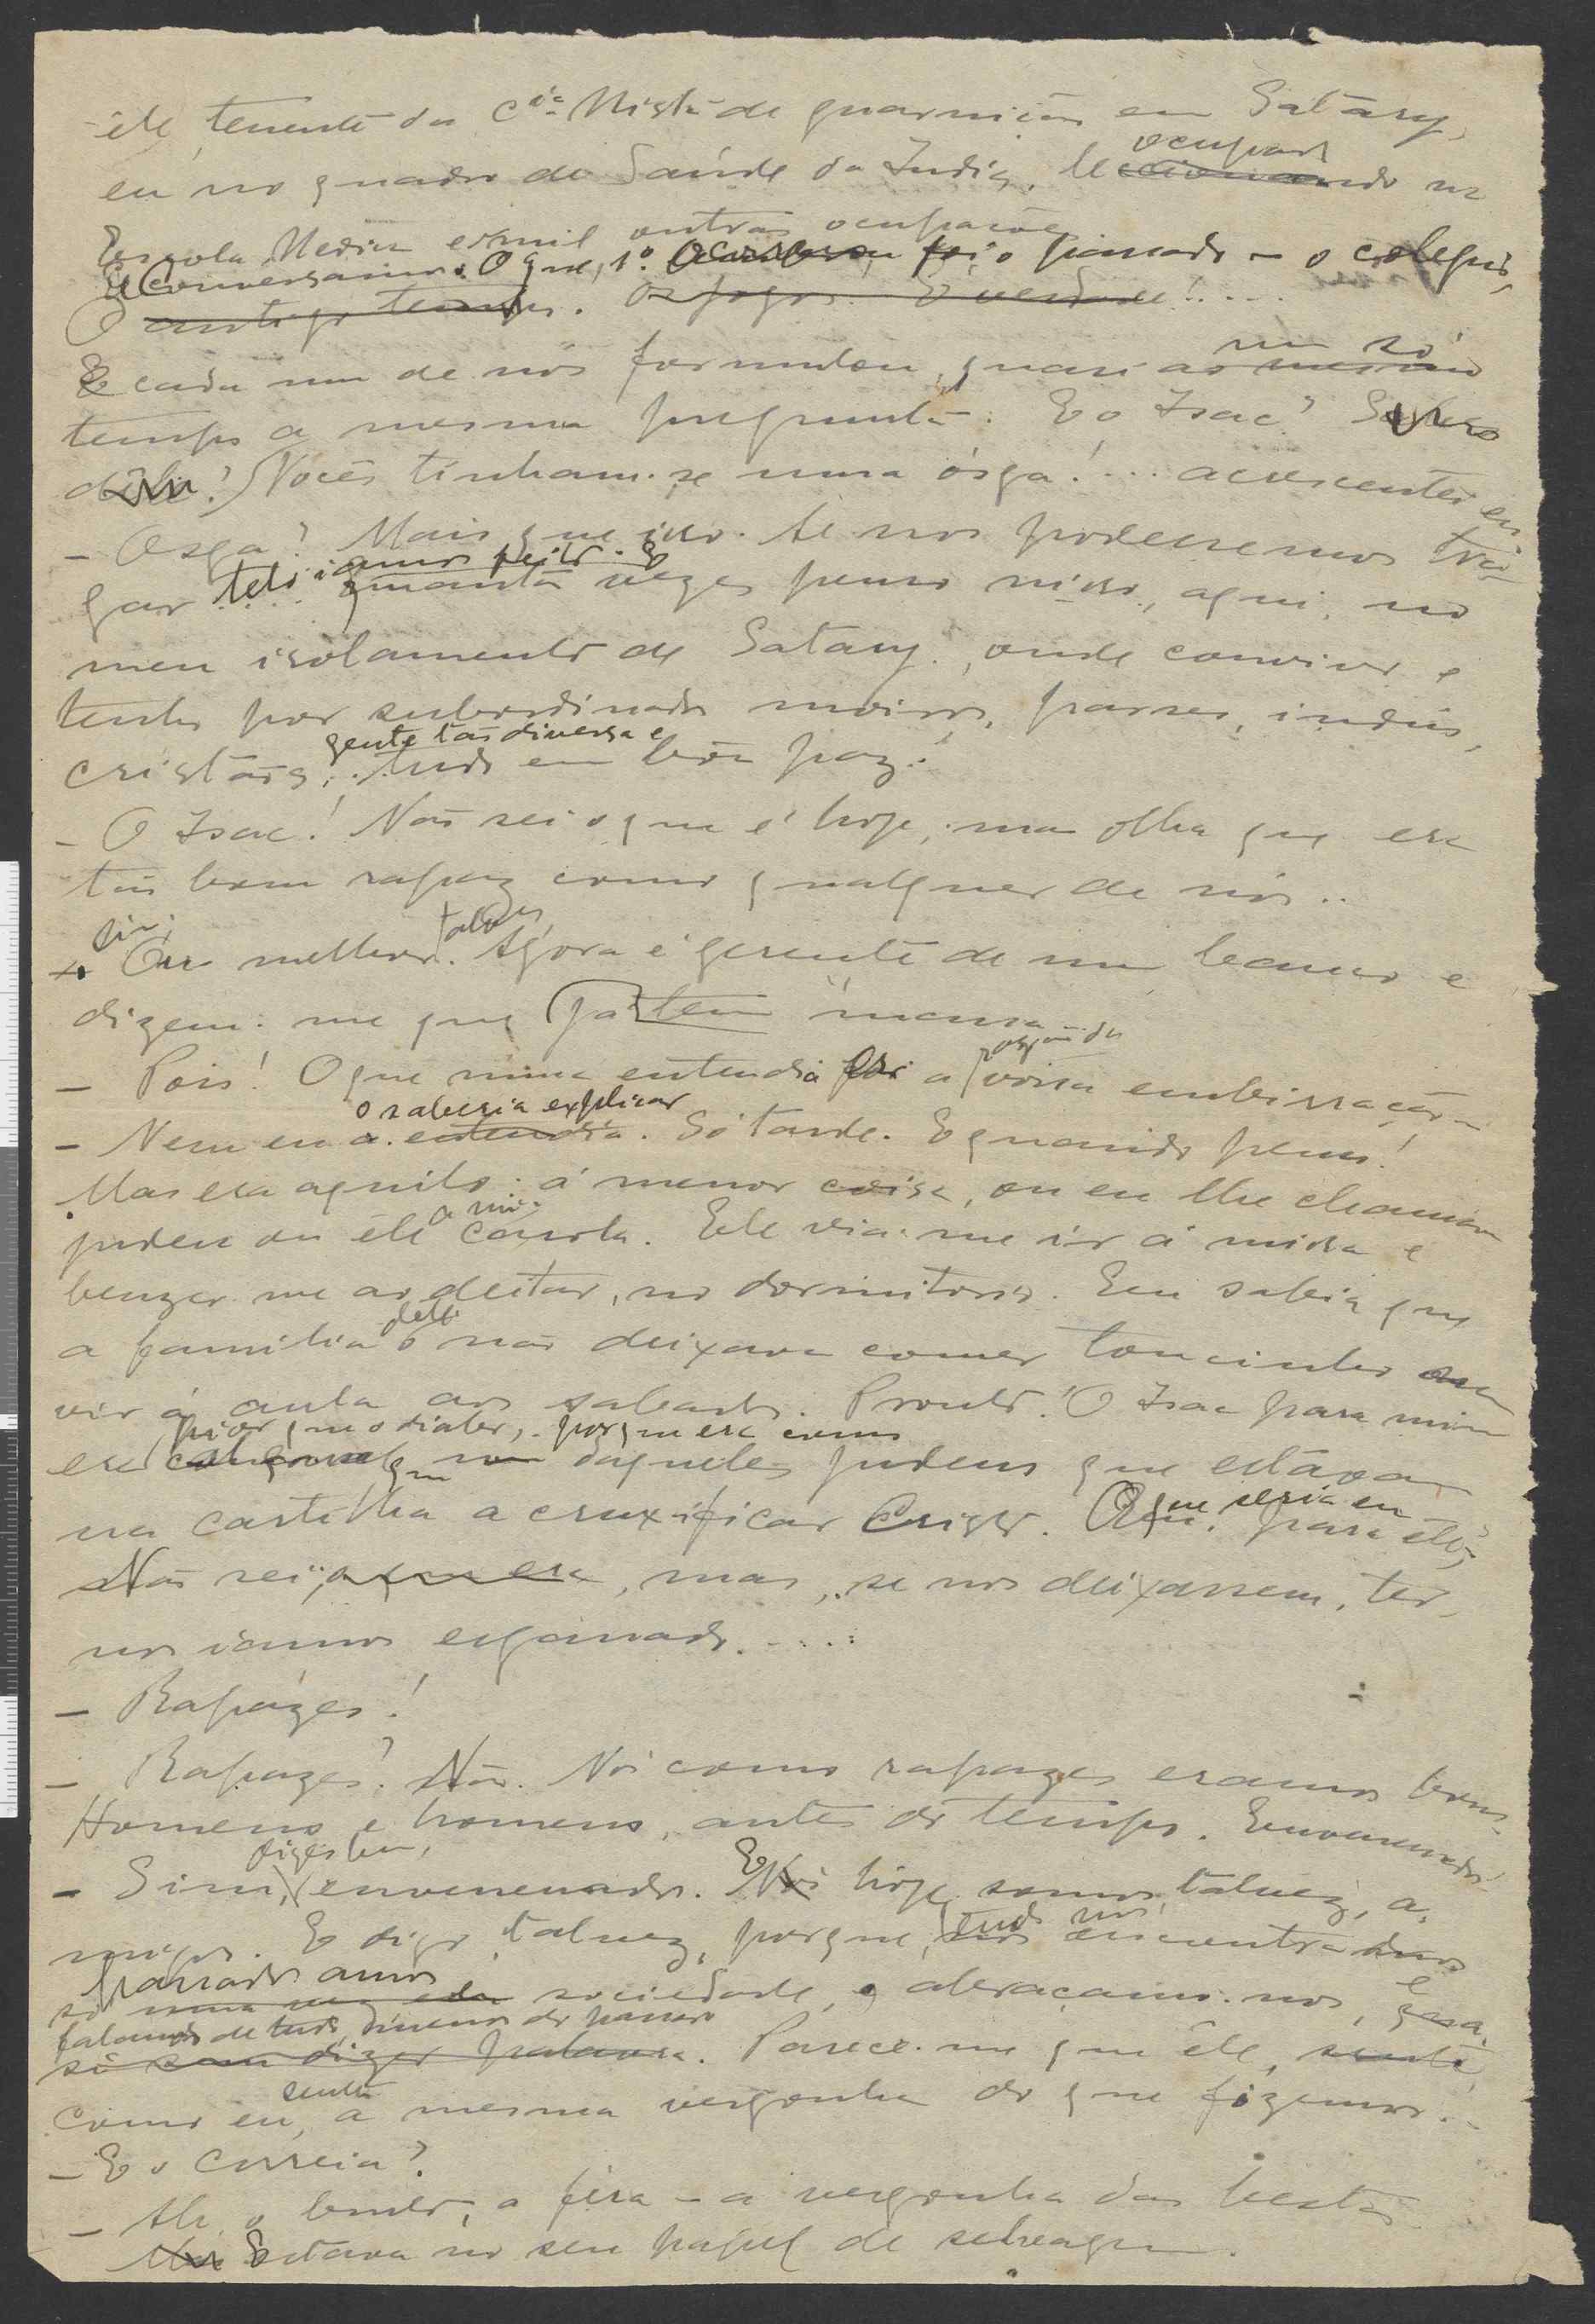 êle, tenente da Cia Mista de guarnição em Satary,
ocupado
eu no quadro de Saúde da India, leccionando na
Escola Medica e mil outras ocupações
E conversamos. O que, 1º. ocorreu foi o passado – o colegio,
O antigo tempo. Os jogos. É verdade!....
um só
E cada um de nós formulou, quasi ao mesmo
tempo a mesma pregunta: E o Isac?
dele? Vocês tinham-se uma ósga!... acrescentei eu
– Osga? Mais que isso. Se nos podessemos tra-
gar telo-iamos feito. E
quanta vezes penso nisso, aqui, no
meu isolamento de Satary, onde convivo e
tenho por subordinados moiros, parses, indús,
gente tão diversa e
cristãos,... tudo em bôa paz.
– O Isac! Não sei o que é hoje, mas olha que era
tão bom rapaz como qualquer de nós..
sim; talvez
– Ou melhor. Agora é gerente de um banco e
dizem-me que já tem
– Pois! O que nunca entendi foi a razão da vossa embirração –
o saberia explicar
– Nem eu a entendia. Só tarde. E quando penso!
Mas era aquilo: á menor coisa, ou eu lhe chamava
a mim
judeu ou êle carola. Ele via-me ir á missa e
benzer-me ao deitar, no dormitorio. Eu sabia que
dele
a familia o não deixava comer toucinho ou
vir á aula aos sabados. Pronto! O Isac para mim
pior que o diabo, porque era como
era um daqueles judeus que estava
na cartilha a cruxificar Cristo. O que seria eu para êle?
Não sei o que era, mas, se nos deixassem, ter-
nos-iamos esganado.....
– Rapázes!
– Rapazes? Não. Nós como rapazes eramos bons.
Homens e homens, antes do tempo. Envenenados.
diges bem,
– Sim, envenenados. E Nós hoje somos, talvez, a-
migos. E digo talvez, porque, tendo-nos encontrado
passados anos
só uma vez na sociedade, abraçamo-nos, e
falamos de tudo, menos do passado
só sem dizer palavra. Parece-me que êle, sente
sente
como eu, a mesma vergonha do que fizemos.
– E o Correia?
– Ah, o bruto, a fera – a vergonha das bestas
Mas Estava no seu papel de selvagem.